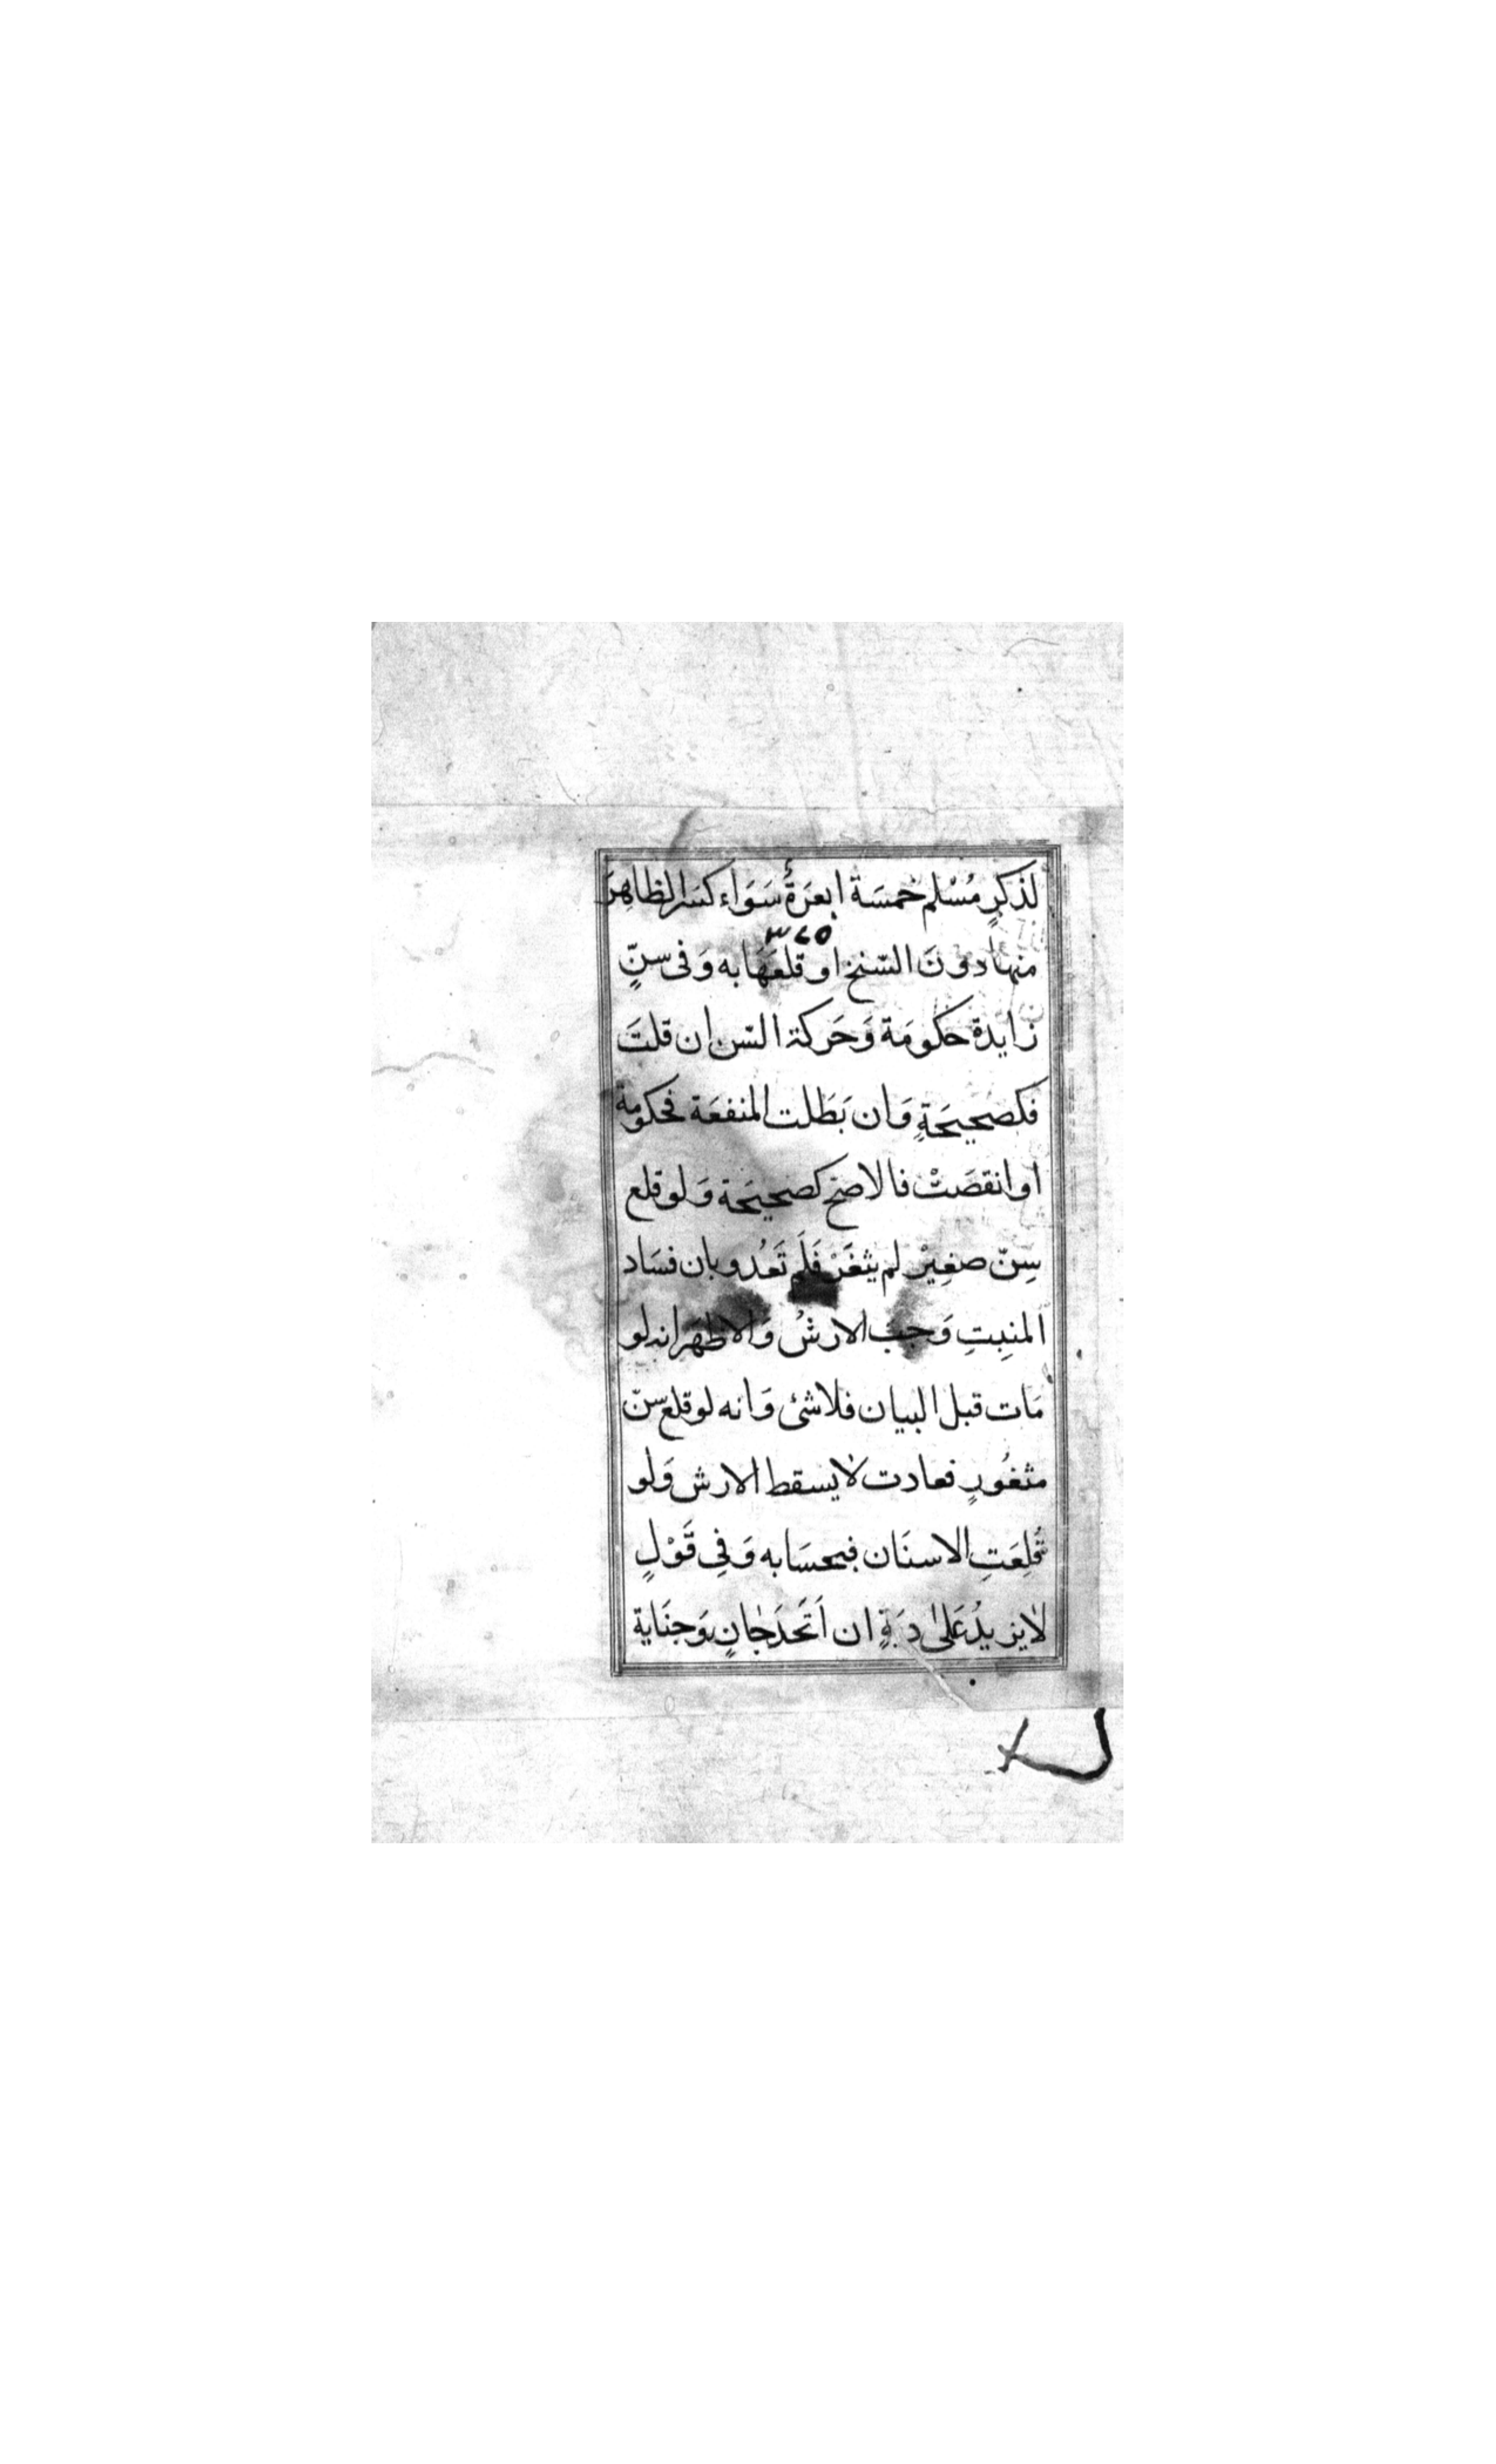 لذكرٍ مُسْلم خمسَة ابعرَةٌ سَوَاء كسَر الظاهِرَ
منها دونَ السّنخ او قلعَهَا به وَفى سنٍّ
زايدة حكومَة وَحَركة السّن ان قلتَ
فكصحيحَةٍ وَان بَطَلت المنفعَة فحكومة
او انقصَتْ فالاصَح كصحيحَة وَلو قلع
سِنّ صغِيرْ لم يثغَرْ فَلَم تَعُد وبان فسَاد
المنبِتِ وَجبَ الارشُ وَالاظهَر انه لو
مَات قبل البيان فلا شئ وَانه لو قلع سنّ
مثغُورٍ فعادت لا يسقط الارش وَلو
قُلِعَتِ الاسنَان فبحسَابه وَفي قَوْلٍ
لا يزيدُ عَلىٰ ديَةٍ ان اَتحَدَ جانٍ وَجنَاية